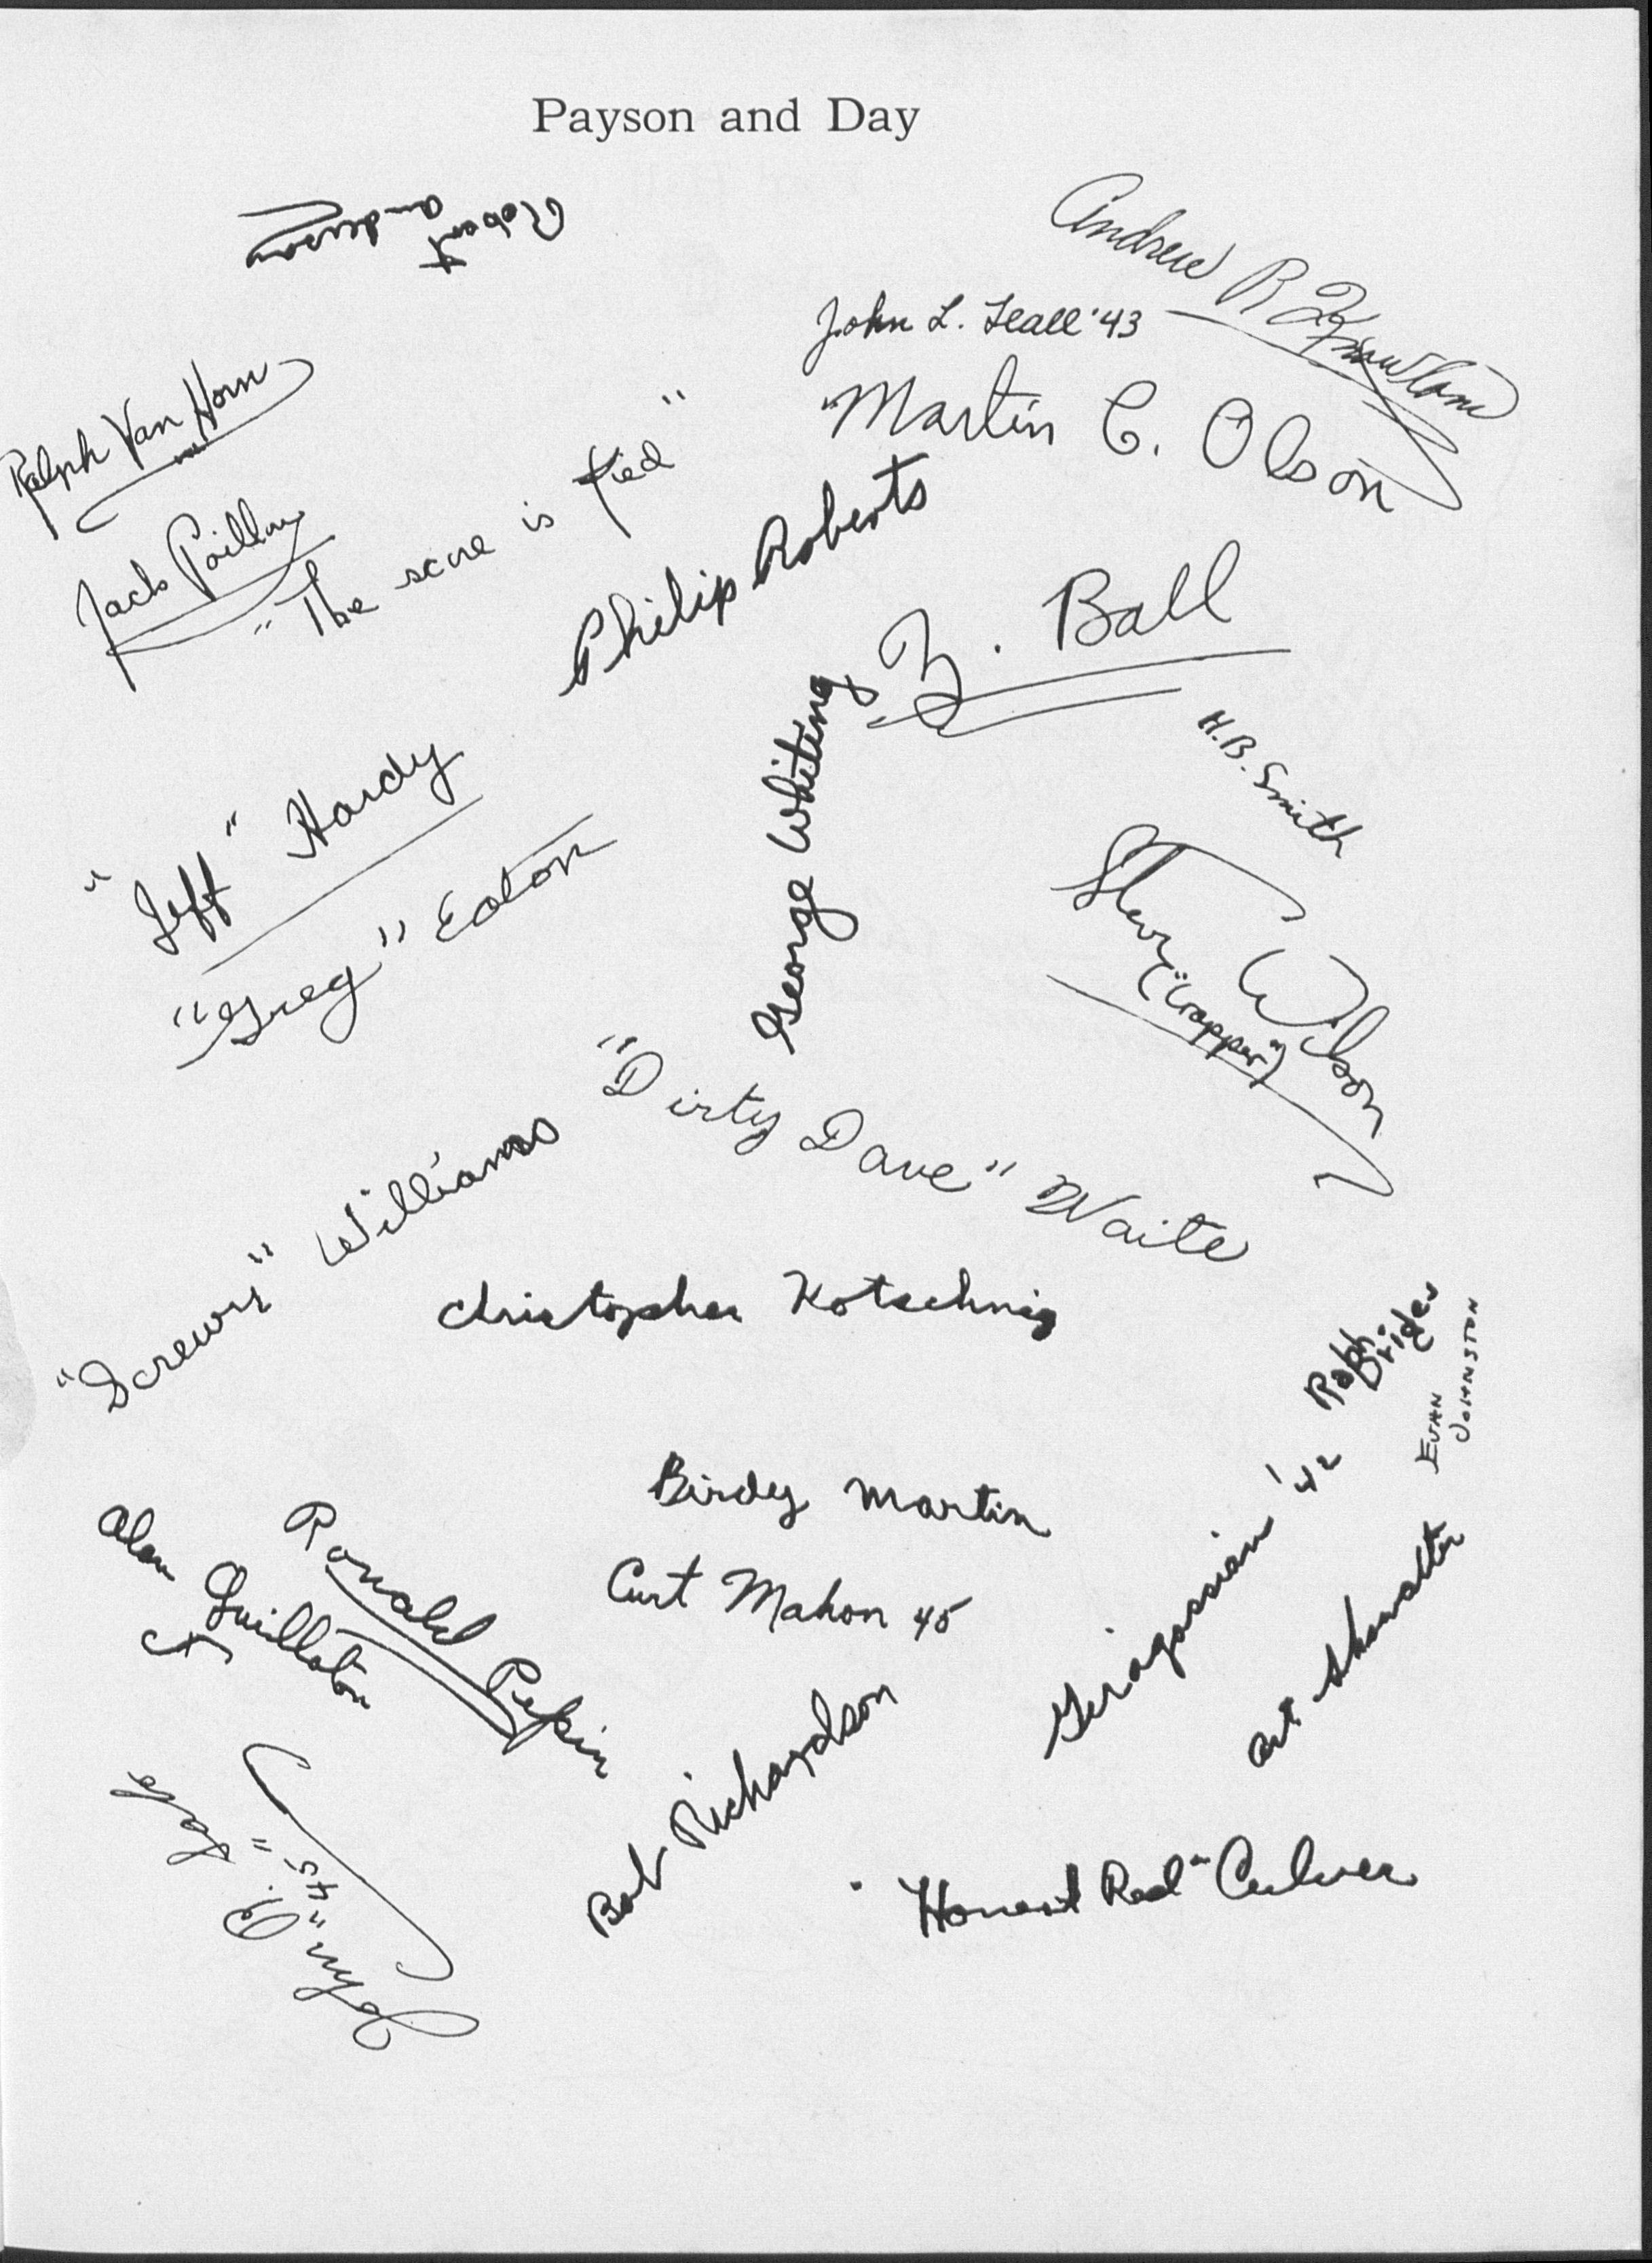 Payson and Day
Robert
Anderson
Andrew B
John L. Teall '43
Ralph Van Horn
"Martin C. Olson
Jack
"The score is tied"
Philip Roberts
Z. Ball
George Whiting
H.B. Smith
"Jeff" Hardy
"Greg" Eaton
Steve Wilson
("Crapper")
"Dirty Dave" Waite
"Screwy" Williams
Christopher Kotschnig
Ralph
Bridges
EVAN
JOHNSTON
Birdy Martin
Giragosian '42
Alan
Ronald Pepin
Curt Mahon 45
Art Showalter
Bob Richardson
"Honest Red" Culver
John
"45"